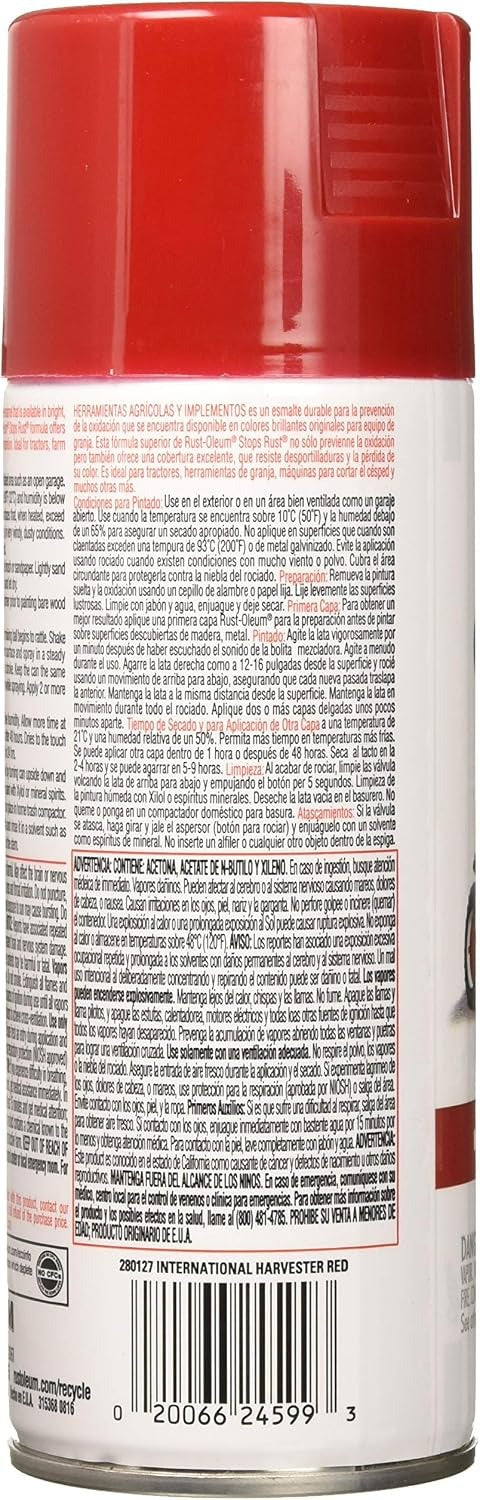 HERRAMIENTAS AGRÍCOLAS Y IMPLEMENTOS es un esmalte durable para la prevención
de la oxidación que se encuentra disponible en colores brillantes originales para equipo de
granja. Esta fórmula superior de Rust-Oleum® Stops Rust® no sólo previene la oxidación
pero también ofrece una cobertura excelente, que resiste desportilladuras y la pérdida de
su color. Es ideal para tractores, herramientas de granja, máquinas para cortar el césped y
muchos otras más.
Condiciones para Pintado: Use en el exterior o en un área bien ventilada como un garaje
abierto. Use cuando la temperatura se encuentra sobre 10°C (50°F) y la humedad debajo
de un 65% para asegurar un secado apropiado. No aplique en superficies que cuando son
claentadas exceden una tempura de 93°C (200°F) o de metal galvinizado. Evite la aplicación
usando rociado cuando existen condiciones con mucho viento o polvo. Cubra el área
circundante para protegerla contra la niebla del rociado. Preparación: Remueva la pintura
suelta y la oxidación usando un cepillo de alambre o papel lija. Lije levemente las superficies
lustrosas. Limpie con jabón y agua, enjuague y deje secar. Primera Capa: Para obtener un
mejor resultado aplique una primera capa Rust-Oleum® para la preparación antes de pintar
sobre superficies descubiertas de madera, metal. Pintado: Agite la lata vigorosamente por
un minuto después de haber escuchado el sonido de la bolita mezcladora. Agite a menudo
durante el uso. Agarre la lata derecha como a 12-16 pulgadas desde la superficie y rocié
usando un movimiento de arriba para abajo, asegurando que cada nueva pasada traslapa
la anterior. Mantenga la lata a la misma distancia desde la superficie. Mantenga la lata en
movimiento durante todo el rociado. Aplique dos o más capas delgadas unos pocos
minutos aparte. Tiempo de Secado y para Aplicación de Otra Capa a una temperatura de
21°C y una humedad relativa de un 50%. Permita más tiempo en temperaturas más frías.
Se puede aplicar otra capa dentro de 1 hora o después de 48 horas. Seca al tacto en la
2-4 horas y se puede agarrar en 5-9 horas. Limpieza: Al acabar de rociar, limpie las válvula
volcando la lata de arriba para abajo y empujando el botón per 5 segundos. Limpieza de
la pintura húmeda con Xilol o espíritus minerales. Deseche la lata vacía en el basurero. No
queme o ponga en un compactador doméstico para basura. Atascamientos: Si la válvula
se atasca, haga girar y jale el aspersor (botón para rociar) y enjuáguelo con un solvente
como espíritus de mineral. No inserte un alfiler o cualquier otro objeto dentro de la espiga.
ADVERTENCIA: CONTIENE: ACETONA, ACETATE DE N-BUTILO Y XILENO. En caso de ingestión, busque atención
médica de immediato. Vapores dañinos. Pueden afectar al cerebro o al sistema nervioso causando mareos, dolores
de cabeza, o nausea. Causan irritaciones en los ojos, piel, nariz y la garganta. No perfore golpee o incinere (quemar)
el contenedor. Una explosición al calor o una prolongada exposición al Sol puede causar ruptura explosiva. No exponga
al calor o almacene en temperaturas sobre 48°C (120°F). AVISO: Los reportes han asociado una exposición excesiva
ocupacional repetida y prolongada a los solventes con daños permanentes al cerebro y al sistema nervioso. Un mal
uso intencional al deliberadamente concentrando y respirando el contenido puede ser dañino o fatal. Los vapores
pueden encenderse explosivamente. Mantenga lejos del calor, chispas y las llamas. No fume. Apague las llamas y
llama pilotos, y apague las estufas, calentadores, motores eléctricos y todas los otras fuentes de ignición hasta que
todos los vapores hayan desaparecido. Prevenga la acumulación de vapores abriendo todas las ventanas y puertas
para lograr una ventilación cruzada. Use solamente con una ventilación adecuada. No respire el polvo, los vapores
o la niebla del rociado. Asegure la entrada de aire fresco durante la aplicación y el secado. Si experimenta lagrimeo de
los ojos, dolores de cabeza, o mareos, use protección para la respiración (aprobada por NIOSH) o salga del área.
Evite contacto con los ojos, piel, y la ropa. Primeros Auxilios: Si es que sufre una dificultad al respirar, salga del área
para obtener aire fresco. Si con contacto con los ojos, enjuague inmediatamente con bastante agua por 15 minutos por
lo menos y obtenga atención médica. Para contacto con la piel, lave completamente con jabón y agua. ADVERTENCIA:
Este producto es conocido en el estado de California como causante de cáncer y defectos de nacimiento u otros daños
reproductivos. MANTENGA FUERA DEL ALCANCE DE LOS NINOS. En caso de emergencia, comuníquese con su
médico, centro local para el control de venenos o clínica para emergencias. Para obtener más información sobre
el producto y los posibles efectos en la salud, llame al (800) 481-4785. PROHIBE SU VENTA A MENORES DE
EDAD; PRODUCTO ORIGINARIO DE E.U.A.
280127 INTERNATIONAL HARVESTER RED
0 20066 24599 3
NO CFCs
rustoleum.com/recycle
315368 0816